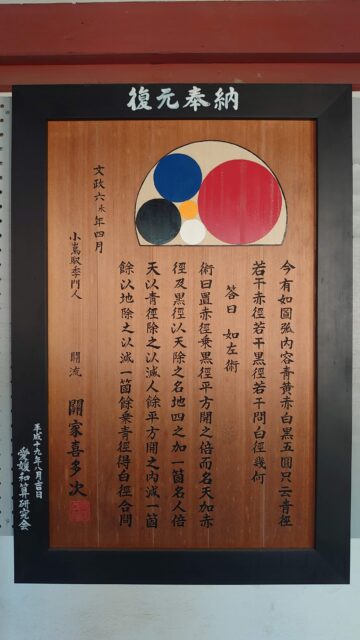 復元奉納
今有如圖弧内容青黄赤白黒五圓只云青徑
若干赤徑若干黒徑若干問白徑幾何
答曰　如左術
術曰置赤徑乗黒徑平方開之倍而名天加赤
徑及黒徑以天除之名地四之加一箇名人倍
天以青徑除之以減人餘平方開之内減一箇
餘以地除之以減一箇餘乗青徑得白徑合問
文政六未年四月
小嶌馭季門人　關流　關家喜多次
平成十九年八月吉日
愛媛和算研究会